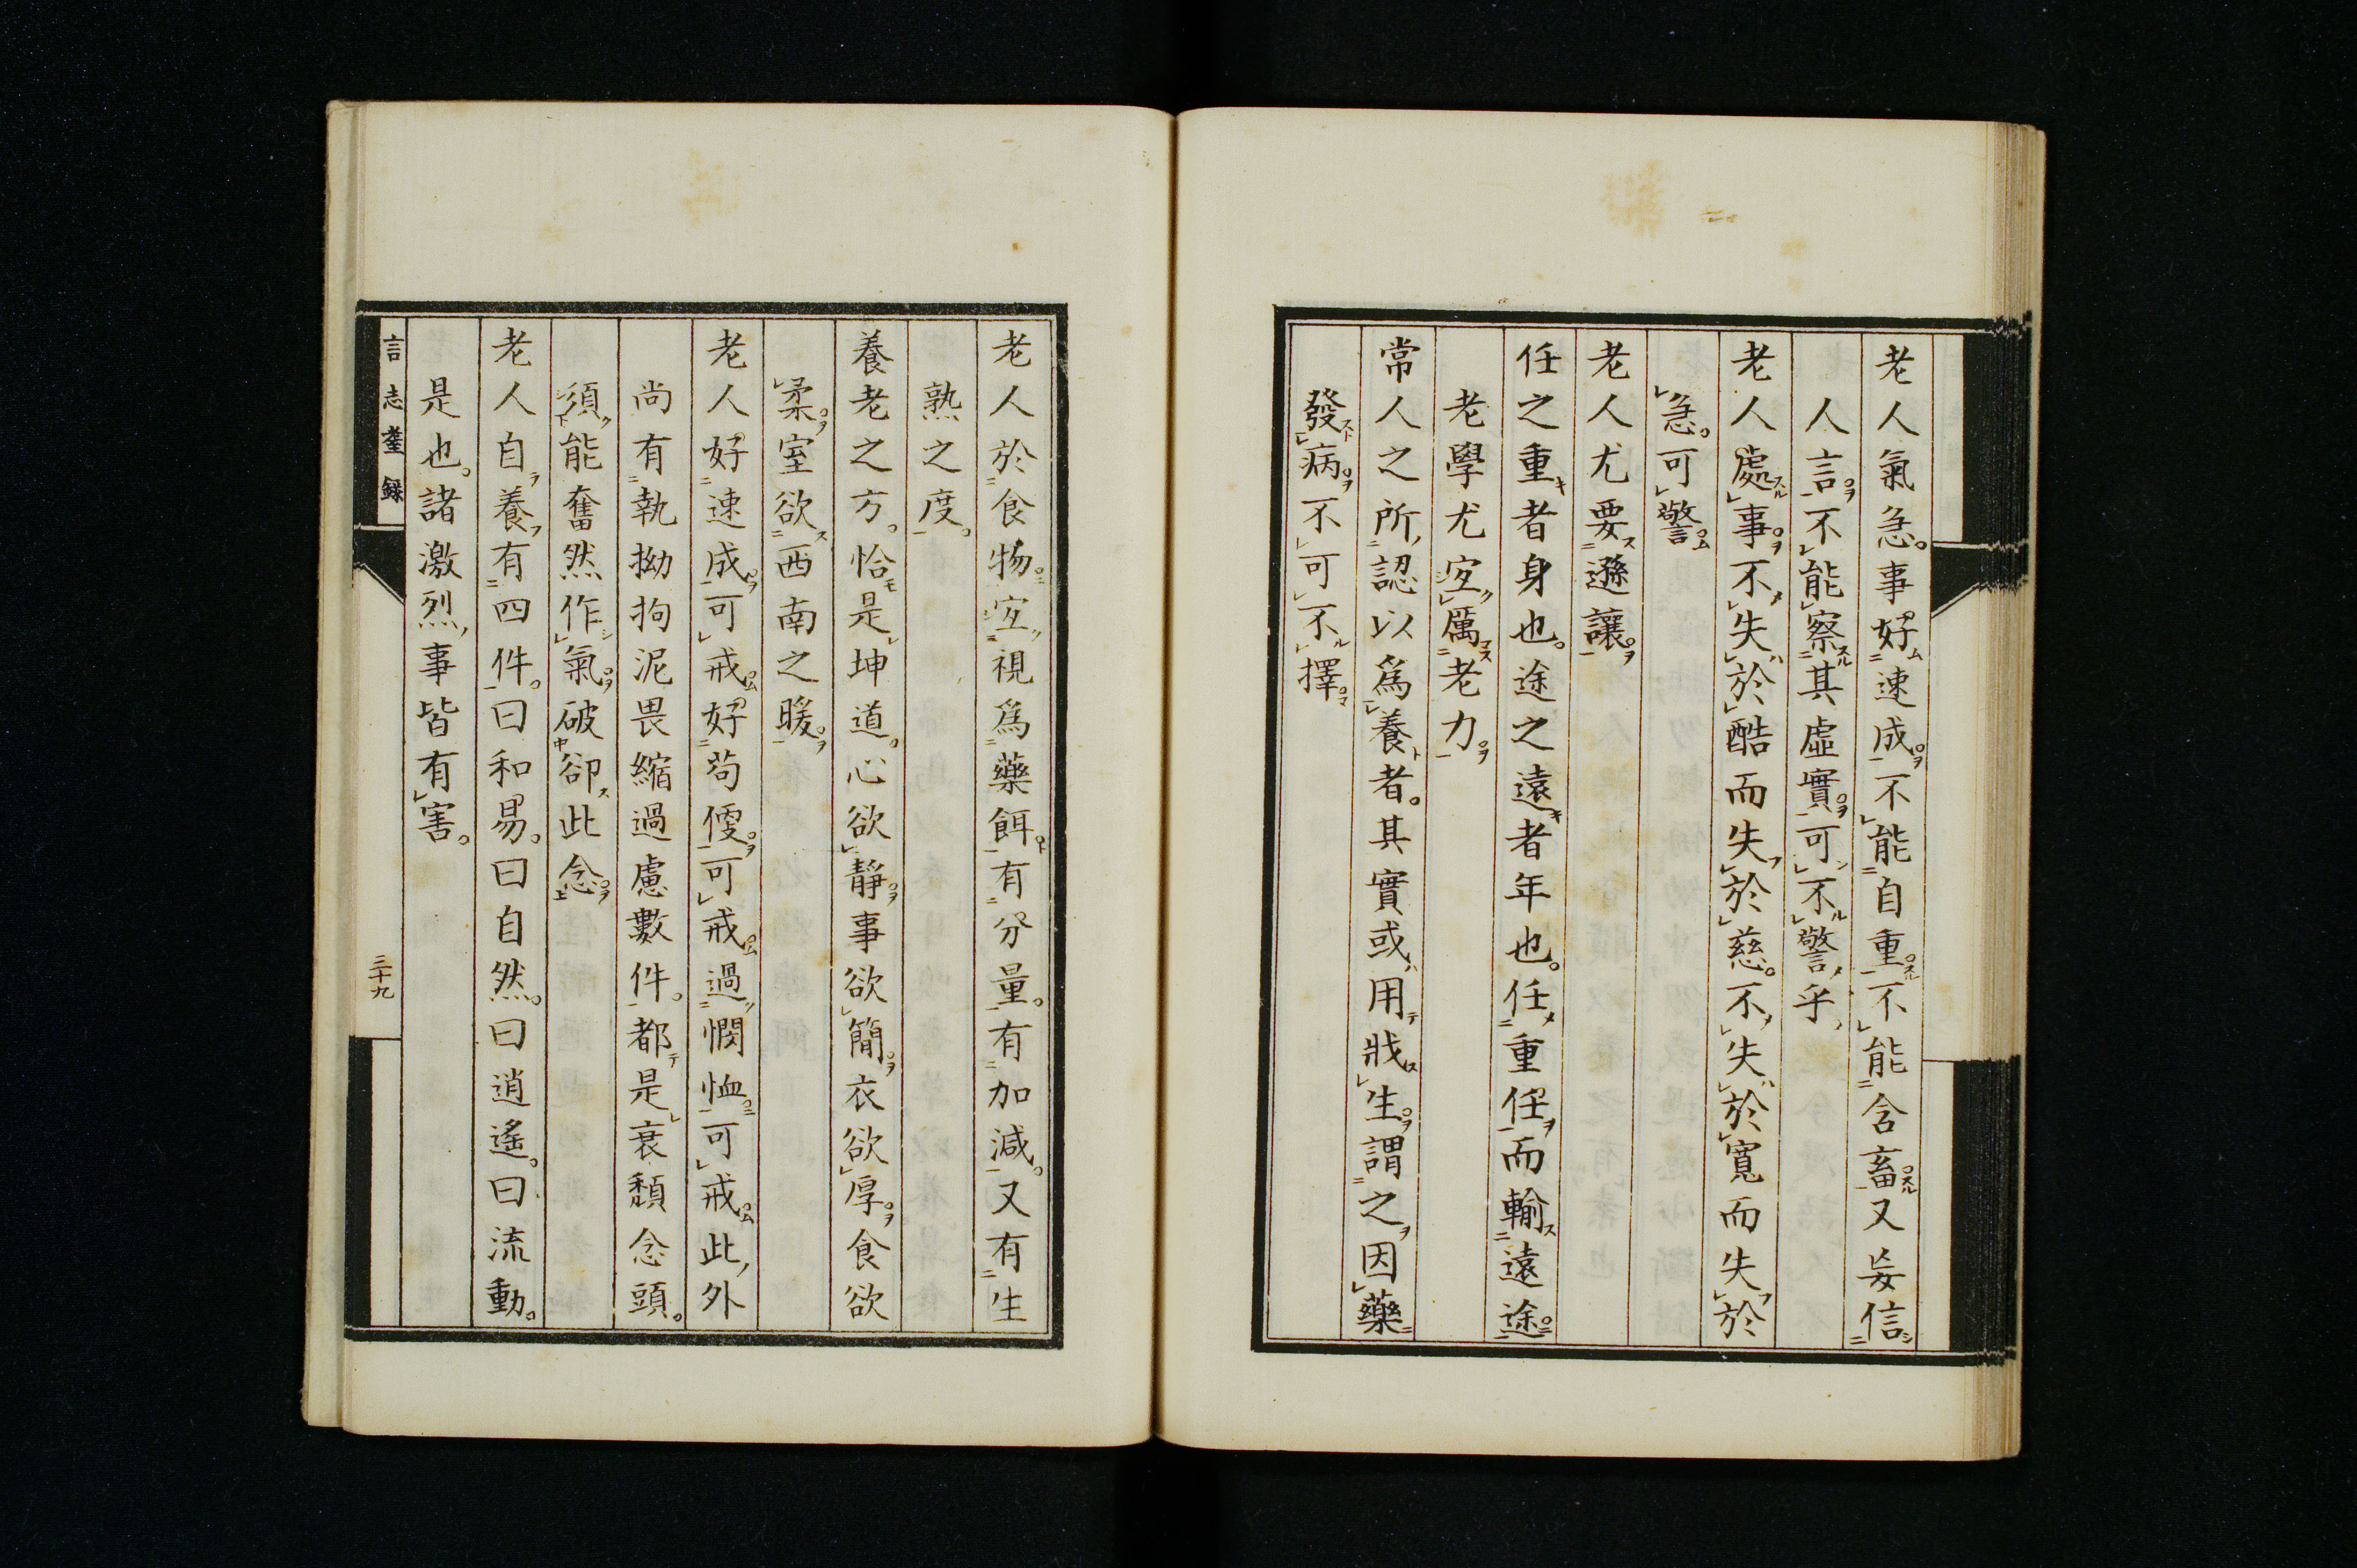 老人氣急。事好速成。不能自重。不能含畜。又妄信
人言。不能察其虛實。可不警乎。
老人處事。不失於酷而失於慈。不失於寬而失於
急。可警。
老人尤要遜讓。
任之重者身也。途之遠者年也。任重任而輸遠途。
老學尤宜厲老力。
常人之所認以爲養者。其實或用戕生。謂之因藥
發病。不可不擇。
老人於食物。宜視爲藥餌。有分量。有加減。又有生
熟之度。
養老之方。恰是坤道。心欲靜。事欲簡。衣欲厚。食欲
柔。室欲西南之暖。
老人好速成。可戒。好苟便。可戒。過憫恤。可戒。此外
尚有執拗拘泥畏縮過慮數件。都是衰頽念頭。
須能奮然作氣。破卻此念。
老人自養有四件。曰和易。曰自然。曰逍遙。曰流動。
是也。諸激烈事皆有害。
言志耋錄
三十九